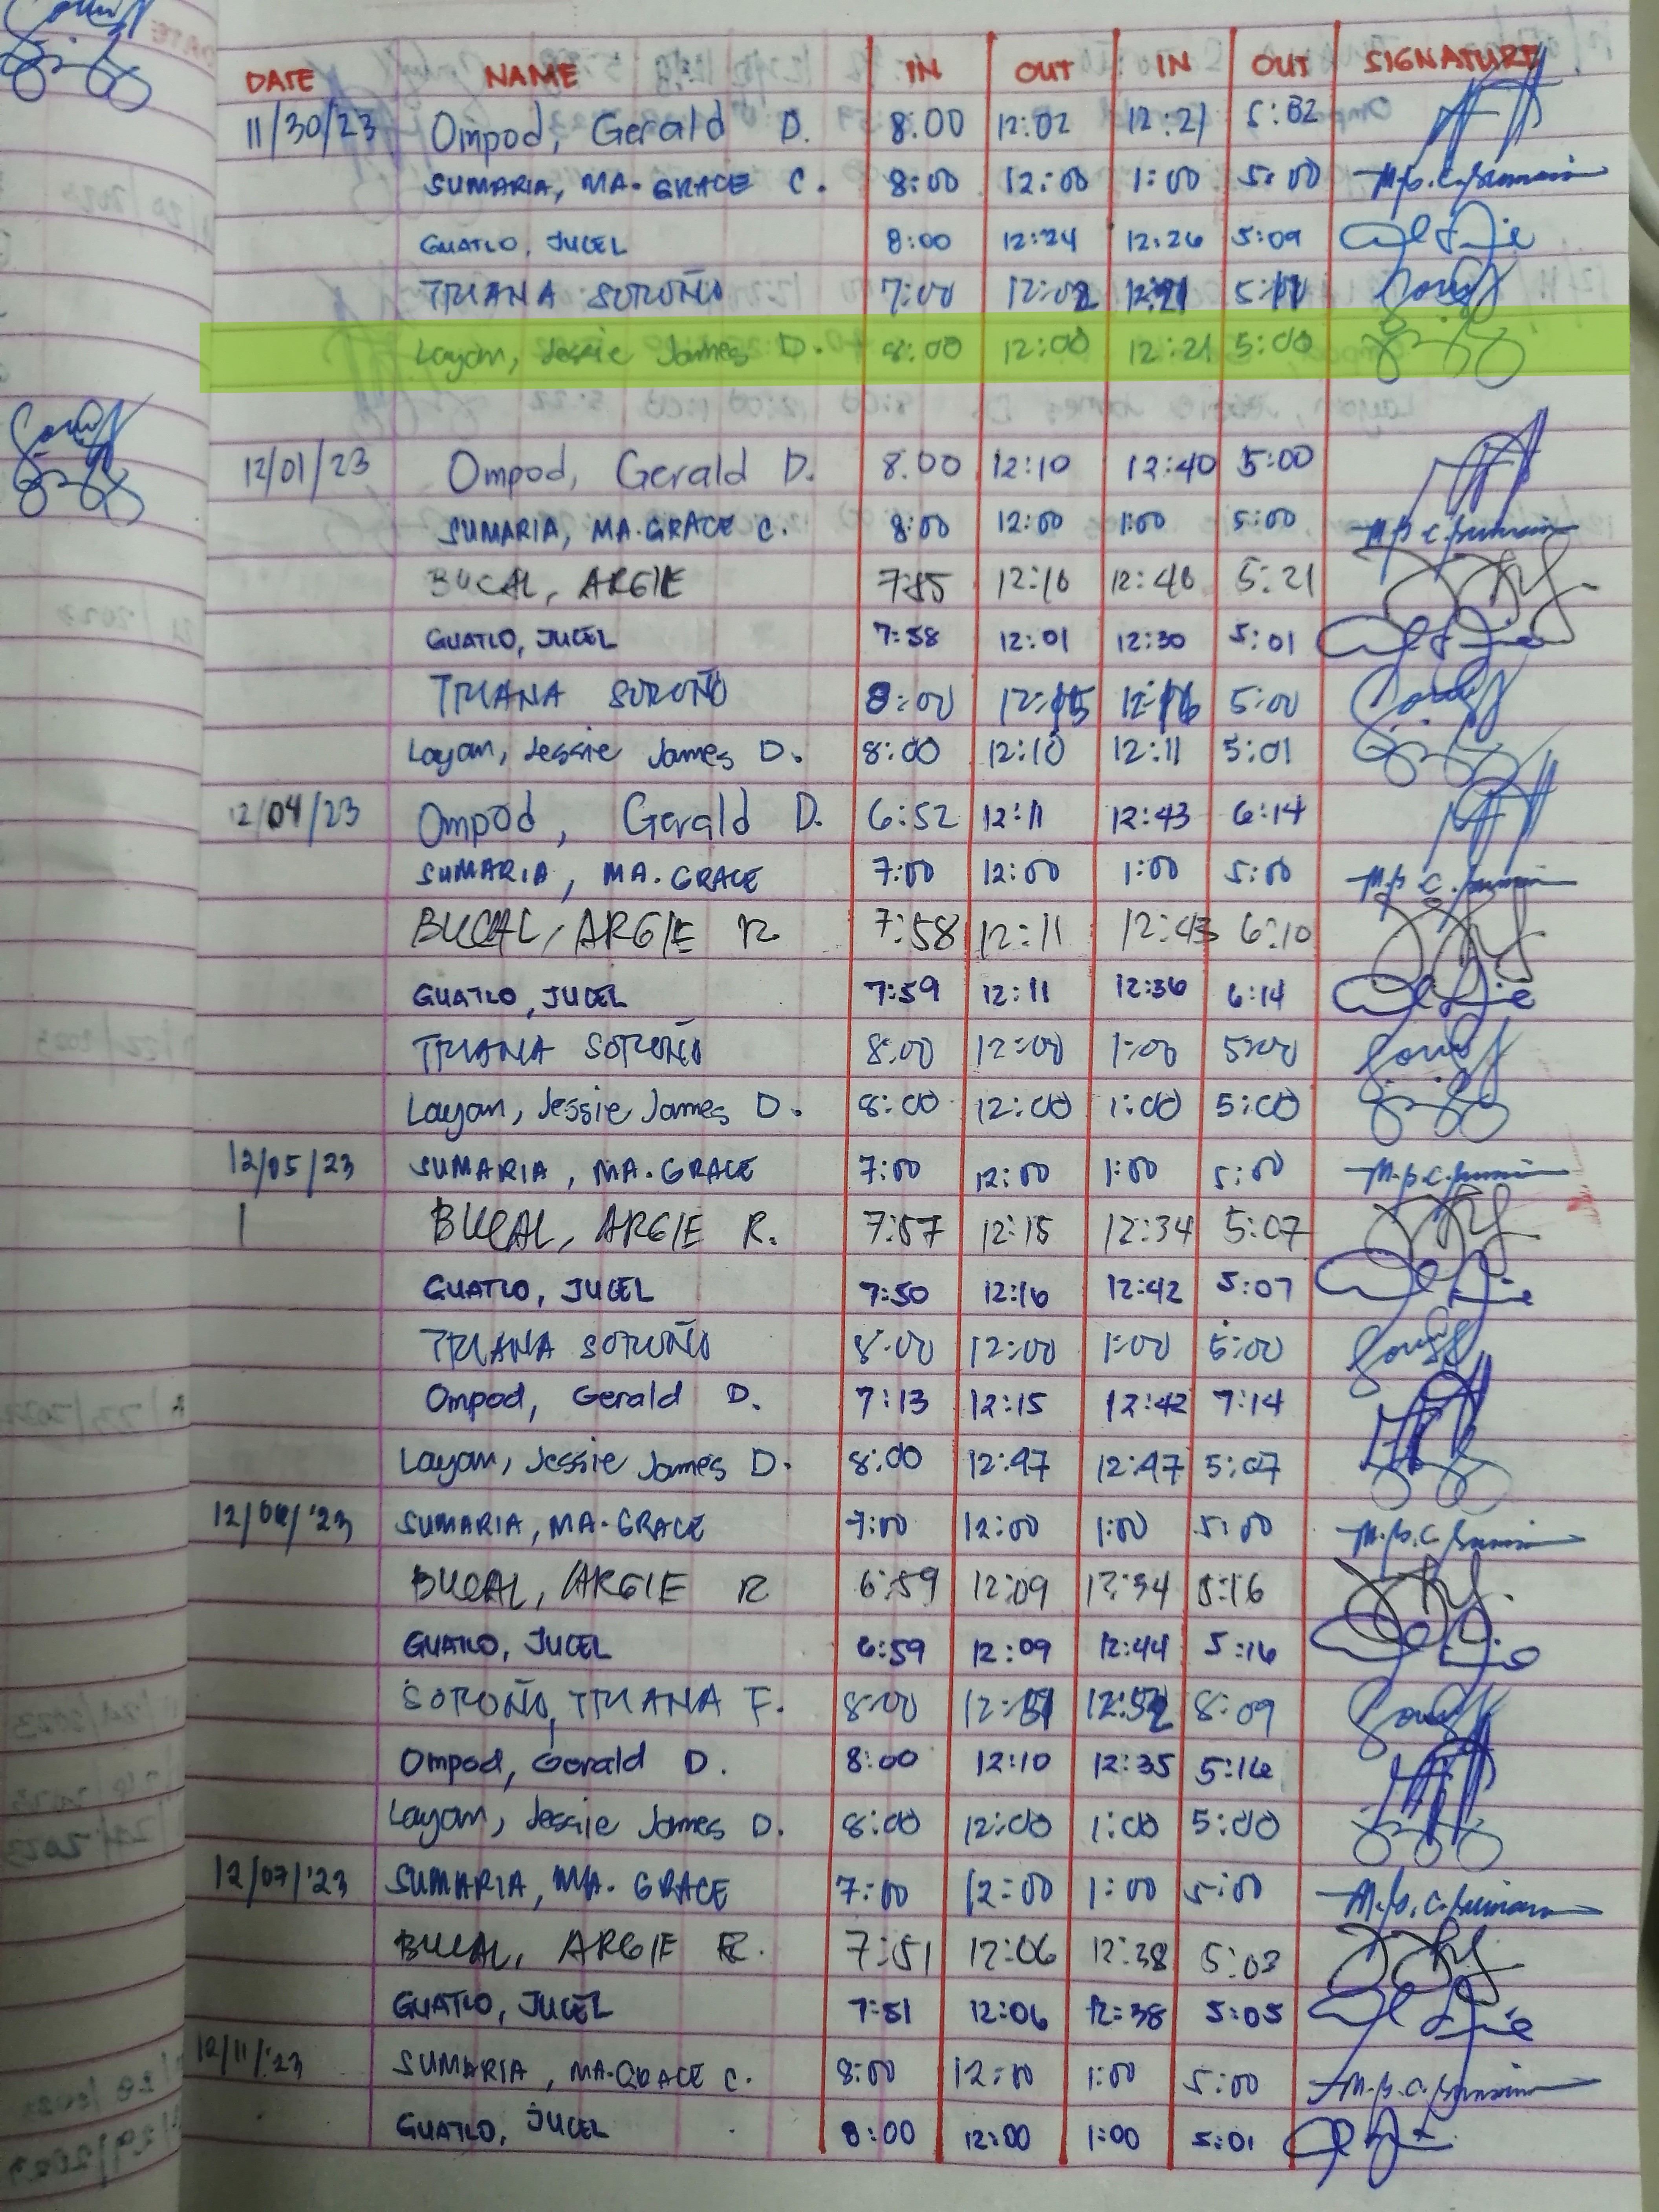 DATE NAME IN OUT IN OUT SIGNATURE
11/30/23 Ompod, Gerald D. 8:00 12:02 12:21 5:02
SUMARIA, MA. GRACE C. 8:00 12:00 1:00 5:00
GUATLO, JUCEL 8:00 12:24 12:26 5:09
TRIANA SOROÑO 7:00 12:02 12:21 5:11
Layan, Jessie James D. 8:00 12:00 12:21 5:00
12/01/23 Ompod, Gerald D. 8.00 12:10 12:40 5:00
SUMARIA, MA. GRACE C. 8:00 12:00 1:00 5:00
BUCAL, ARGIE 12:16 12:46 5:21
GUATLO, JUCEL 7:58 12:01 12:30 5:01
TRIANA SOROÑO 8:00 12:15 12:16 5:00
Layan, Jessie James D. 8:00 12:10 12:11 5:01
12/04/23 Ompod, Gerald D. 6:52 12:11 12:43 6:14
SUMARIA, MA. GRACE 7:00 12:00 1:00 5:00
BUCAL, ARGIE R 7:58 12:11 12:43 6:10
GUATLO, JUCEL 7:59 12:11 12:36 6:14
TRIANA SOROÑO 8:00 12:00 1:00 5:00
Layan, Jessie James D. 8:00 12:00 1:00 5:00
12/05/23 SUMARIA, MA. GRACE 7:00 12:00 1:00 5:00
BUCAL, ARGIE R. 7:57 12:15 12:34 5:07
GUATLO, JUCEL 7:50 12:16 12:42 5:07
TRIANA SOROÑO 8:00 12:00 1:00 5:00
Ompod, Gerald D. 7:13 12:15 12:42 7:14
Layan, Jessie James D. 8:00 12:47 12:47 5:07
12/06/'23 SUMARIA, MA. GRACE 7:00 12:00 1:00 5:00
BUCAL, ARGIE R 6:59 12:09 12:34 5:16
GUATLO, JUCEL 6:59 12:09 12:44 5:16
SOROÑO, TRIANA F. 8:00 12:51 12:52 8:09
Ompod, Gerald D. 8:00 12:10 12:35 5:16
Layan, Jessie James D. 8:00 12:00 1:00 5:00
12/07/'23 SUMARIA, MA. GRACE 7:00 12:00 1:00 5:00
BUCAL, ARGIE R. 7:51 12:06 12:38 5:03
GUATLO, JUCEL 7:51 12:06 12:38 5:05
12/11/'23 SUMARIA, MA. GRACE C. 8:00 12:00 1:00 5:00
GUATLO, JUCEL 8:00 12:00 1:00 5:01